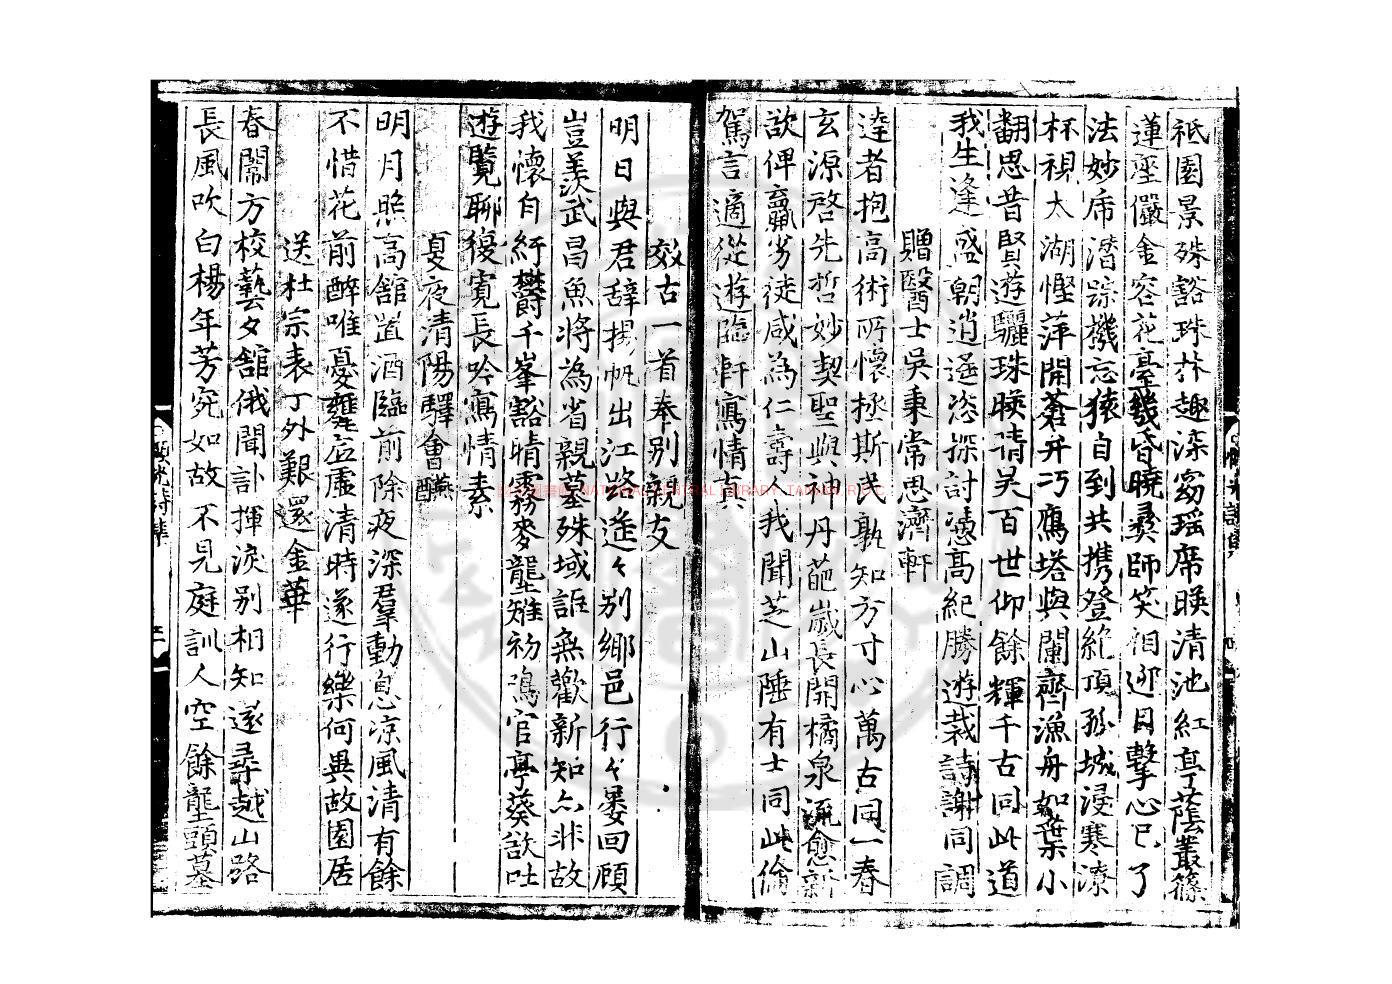 祗園景殊豁珠林趣深窈瑶席暎清池紅亭蔭叢篠
蓮座儼金容花臺幾昏曉㢤師笑相迎目擊心已了
法妙席潛踪機忘猿自到共携登絶頂孤城浸寒潦
杯視太湖慳萍開蒼弁巧鴈塔與闌齊漁舟如葉小
翻思昔賢遊驪珠暎清吴百世仰餘輝千古同此道
我生逢盛朝逍遥恣探討憑高紀勝遊裁詩謝同調
贈醫士吳秉常思濟軒
達者抱高術所懷拯斯民孰知方寸心萬古同一春
玄源啓先哲妙契聖與神丹葩歲長開橘泉流愈新
欲俾羸劣徒咸為仁壽人我聞芝山陲有士同此倫
駕言適從遊臨軒寫情真
效古一首奉别親友
明日與君辞揚帆出江路遥々别鄉邑行々屡回顧
豈羡武昌魚將為省親墓殊域詎無歡新知亦非故
我懷自紆欝千峯豁晴霧麥壟雉初鳴官亭葵欲吐
遊覽聊復寛長吟寫情素
夏夜清陽驛會醼
明月照高舘置酒臨前除夜深羣動息凉風清有餘
不惜花前醉唯憂罍缶虚清時遂行樂何異故園居
送杜宗表丁外艱還金華
春闈方校藝夕舘俄聞訃揮淚别相知遂尋越山路
長風吹白楊年芳宛如故不見庭訓人空餘壟頭墓